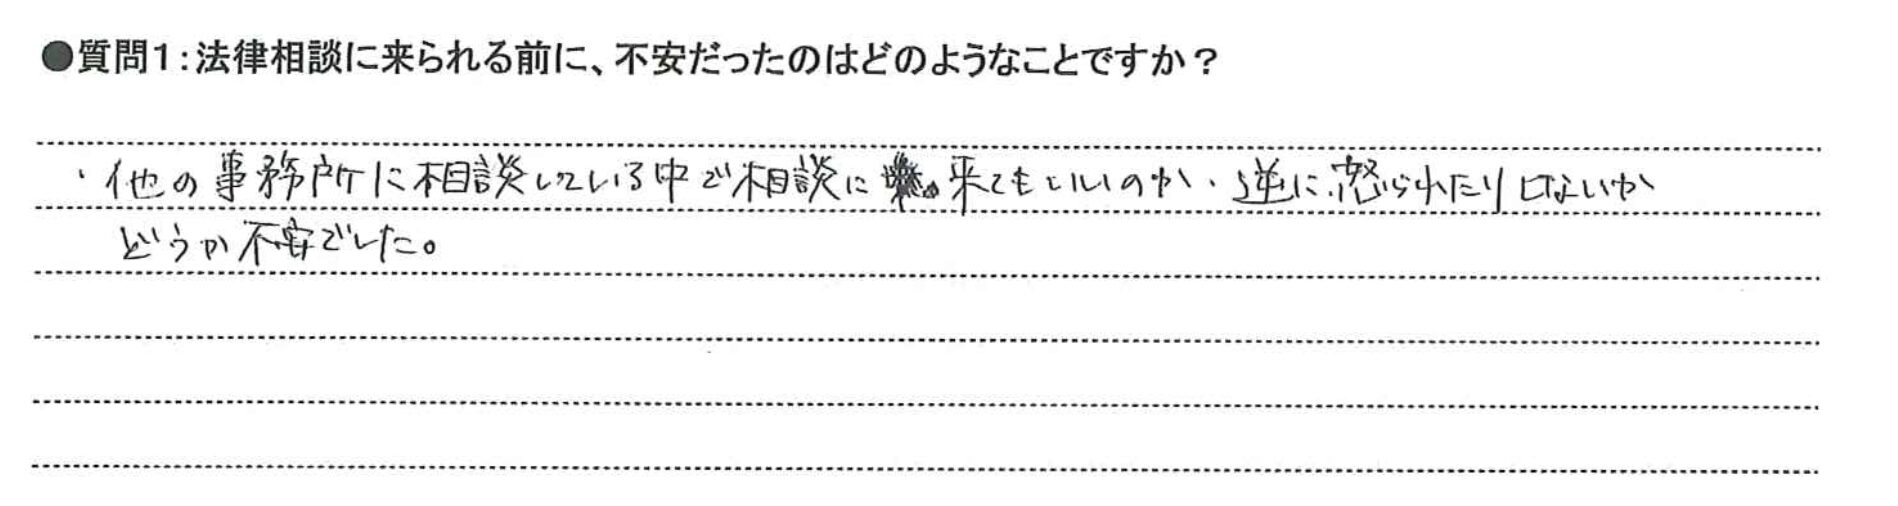 ●質問1:法律相談に来られる前に、不安だったのはどのようなことですか?
・他の事務所に相談している中で相談に来てもいいのか、逆に怒られたりしないか
どうか不安でした。